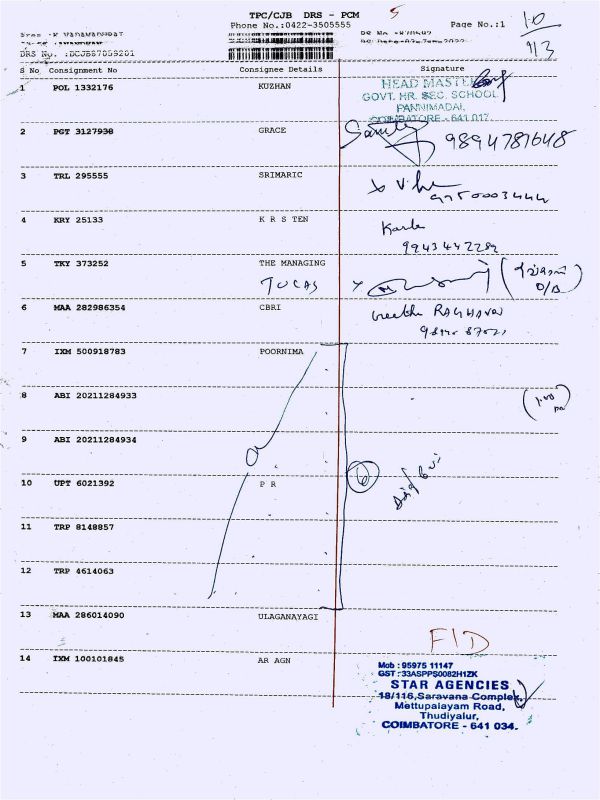 TPC/CJB DRS - PCM
5
Phone No.:0422-3505555
Page No.:1
10
9/3
DRS No. :DCJB87059201
S No Consignment No Consignee Details Signature
1 POL 1332176 KUZHAN
HEAD MASTER
GOVT. HR. SEC. SCHOOL
PANNIMADAI,
COIMBATORE - 641 017.
2 PGT 3127938 GRACE
9894781648
3 TRL 295555 SRIMARIC
9750003444
4 KRY 25133 K R S TEN
9943442289
5 TKY 373252 THE MANAGING
TUCAS
O/D
6 MAA 282986354 CBRI
RAGHAVAN
7 IXM 500918783 POORNIMA
8 ABI 20211284933
9 ABI 20211284934
10 UPT 6021392 P R
6
11 TRP 8148857
12 TRP 4614063
13 MAA 286014090 ULAGANAYAGI
FID
14 IXM 100101845 AR AGN
Mob : 95975 11147
GST : 33ASPPS0082H1ZK
STAR AGENCIES
18/116,Saravana Complex,
Mettupalayam Road,
Thudiyalur,
COIMBATORE - 641 034.